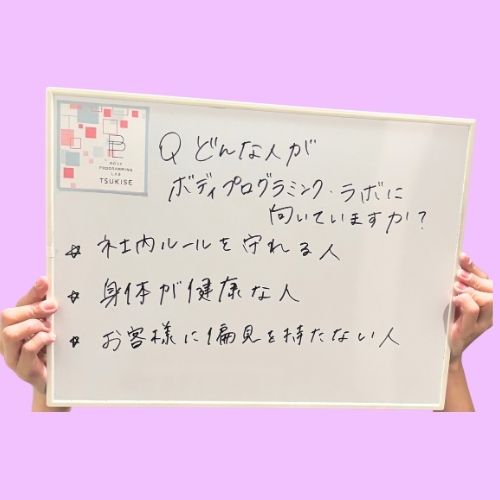 BODY
PROGRAMMING
LAB
TSUKISE
Q どんな人が
ボディプログラミング・ラボに
向いていますか?
☆ 社内ルールを守れる人
☆ 身体が健康な人
☆ お客様に偏見を持たない人